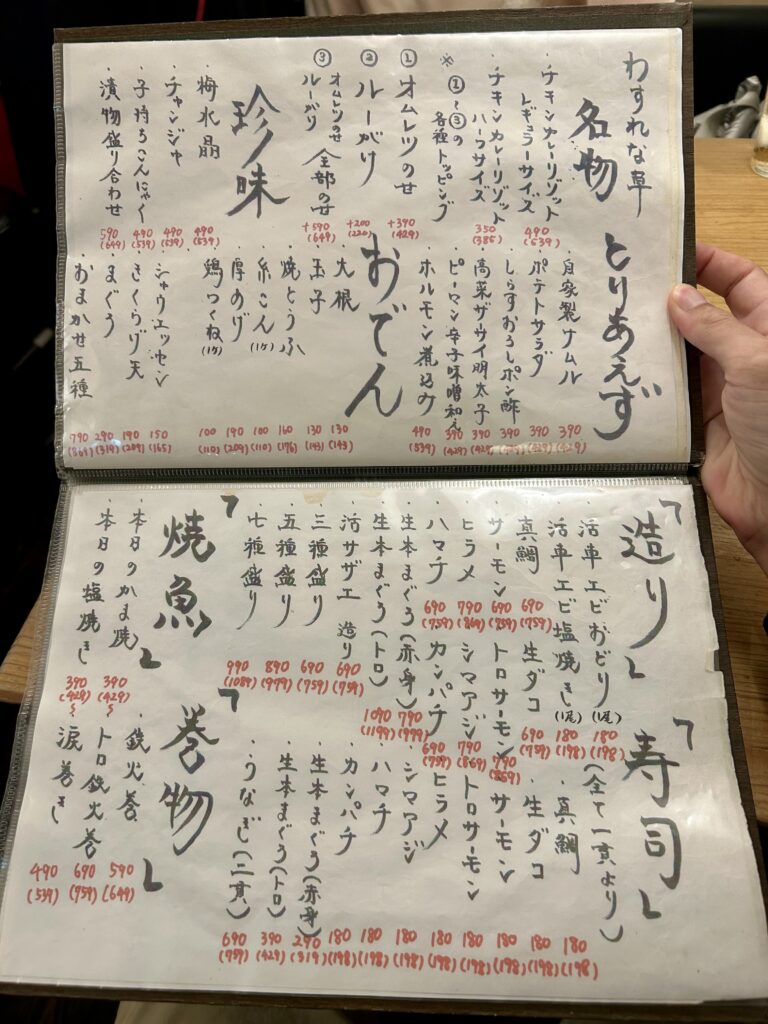 わすれな草
名物
・チキンカレーリゾット
レギュラーサイズ
490
(539)
・チキンカレーリゾット
ハーフサイズ
350
(385)
※①~③の
各種トッピング
① オムレツのせ
+390
(429)
② ルーがけ
+200
(220)
③ オムレツのせ
ルーがけ
全部のせ
+590
(649)
珍味
・梅水晶
490
(539)
・チャンジャ
490
(539)
・子持ちこんにゃく
490
(539)
・漬物盛り合わせ
590
(649)
とりあえず
・自家製ナムル
390
(429)
・ポテトサラダ
390
(429)
・しらすおろしポン酢
390
(429)
・高菜ザーサイ明太子
390
(429)
・ピーマン辛子味噌和え
390
(429)
・ホルモン煮込み
490
(539)
おでん
・大根
130
(143)
・玉子
130
(143)
・焼とうふ
160
(176)
・糸こん(1ケ)
100
(110)
・厚あげ
190
(209)
・鶏つくね(1ケ)
100
(110)
・シャウエッセン
150
(165)
・きくらげ天
190
(209)
・まぐろ
290
(319)
・おまかせ五種
790
(869)
「造り」
・活車エビおどり(1尾)
180
(198)
・活車エビ塩焼き(1尾)
180
(198)
・真鯛
690
(759)
・生ダコ
690
(759)
・サーモン
690
(759)
・トロサーモン
790
(869)
・ヒラメ
790
(869)
・シマアジ
790
(869)
・ハマチ
690
(759)
・カンパチ
690
(759)
・生本まぐろ(赤身)
790
(979)
・生本まぐろ(トロ)
1090
(1199)
・活サザエ 造り
690
(759)
・三種盛り
690
(759)
・五種盛り
890
(979)
・七種盛り
990
(1089)
「焼魚」
・本日のかま焼
390
(429)~
・本日の塩焼き
390
(429)~
「寿司」
(全て一貫より)
・真鯛
180
(198)
・生ダコ
180
(198)
・サーモン
180
(198)
・トロサーモン
180
(198)
・ヒラメ
180
(198)
・シマアジ
180
(198)
・ハマチ
180
(198)
・カンパチ
180
(198)
・生本まぐろ(赤身)
290
(319)
・生本まぐろ(トロ)
390
(429)
・うなぎ(二貫)
690
(759)
「巻物」
・鉄火巻
590
(649)
・トロ鉄火巻
690
(759)
・涙巻き
490
(539)